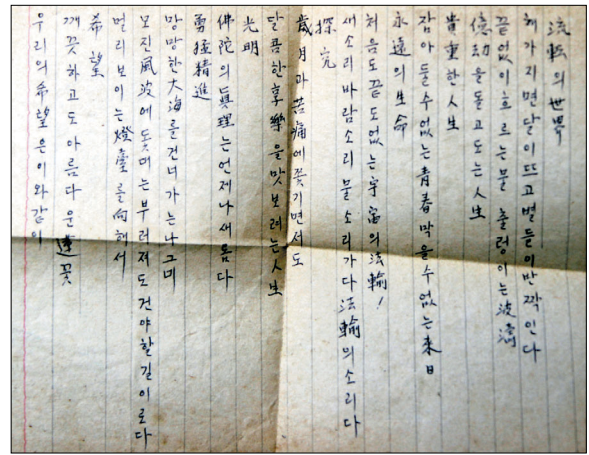 流転의 世界
해가지면 달이 뜨고 별들이 반짝인다
끝없이 흐르는 물 출렁이는 波濤
億劫을 돌고 도는 人生
貴重한 人生
잡아 둘수 없는 青春 막을 수 없는 来日
永遠의 生命
처음도 끝도 없는 宇宙의 法輪!
새소리 바람소리 물소리가 다 法輪의 소리다
探究
歲月과 苦痛에 쫓기면서도
달콤한 享樂을 맛보려는 人生
光明
佛陀의 眞理는 언제나 새롭다
勇猛精進
망망한 大海를 건너가는 나그네
모진 風波에 돛대는 부러져도 건야할 길이로다
멀리 보이는 燈臺를 向해서
希望
깨끗하고도 아름다운 蓮꽃
우리의 希望은 이와같이